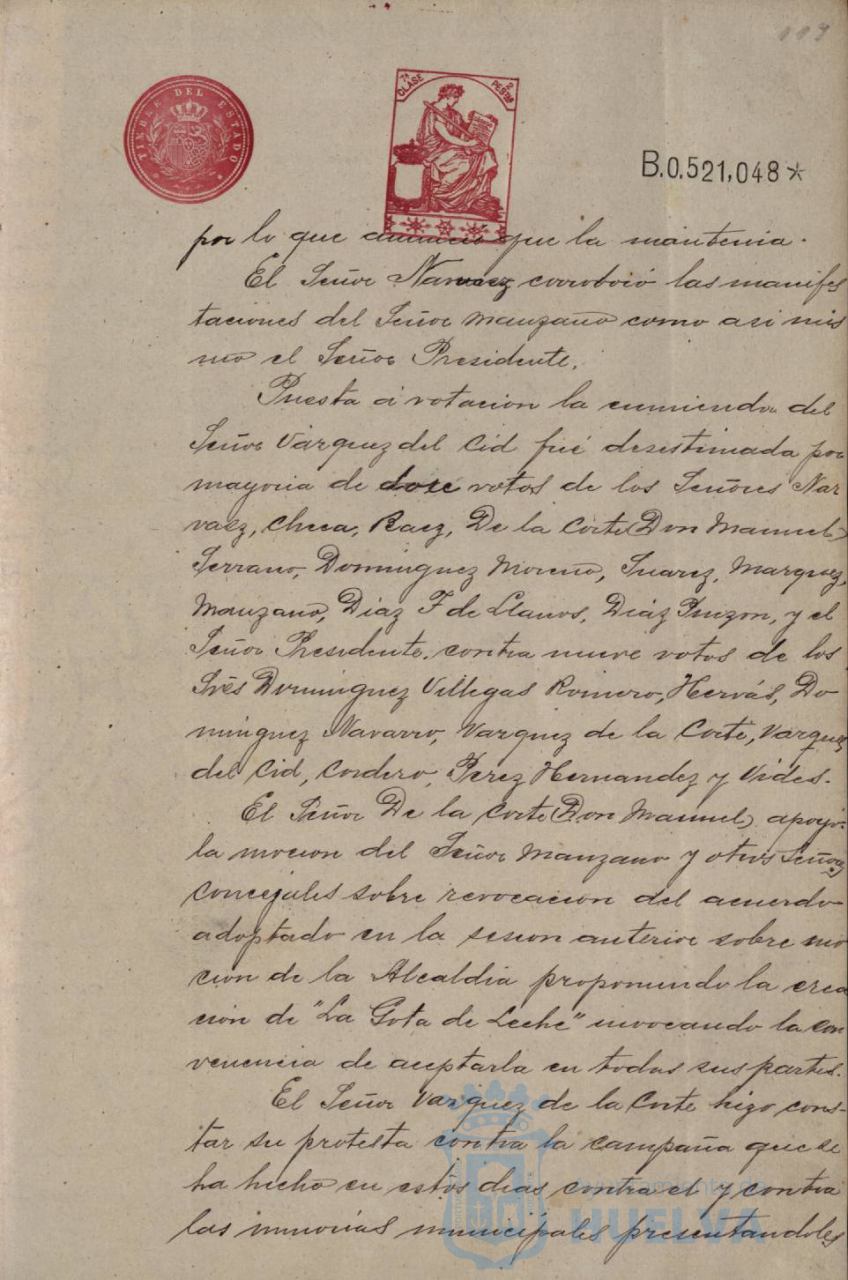 119
TIMBRE DEL ESTADO
7ª CLASE 2 PESETAS
B.0.521,048*
por lo que anunció que la mantenia.
El Señor Narvaez corroboró las manifes
taciones del Señor Manzano como asi mis
mo el Señor Presidente.
Puesta á votacion la enmienda del
Señor Vázquez del Cid fué desestimada por
mayoria de doce votos de los Señores Nar
vaez, Checa, Baez, De la Corte (Don Manuel)
Serrano, Dominguez Moreno, Suarez, Marquez,
Manzano, Diaz F de Llanos, Diaz Pinzon, y el
Señor Presidente, contra nueve votos de los
Srés Dominguez Villegas Romero, Hervás, Do
minguez Navarro, Vazquez de la Corte, Vazquez
del Cid, Cordero, Perez Hernandez y Vides.
El Señor De la Corte (Don Manuel) apoyó
la mocion del Señor Manzano y otros Señores
Concejales sobre revocacion del acuerdo
adoptado en la sesion anterior sobre mo
cion de la Alcaldia proponiendo la crea
cion de "La Gota de Leche" invocando la con
veniencia de aceptarla en todas sus partes.
El Señor Vazquez de la Corte hizo cons-
tar su protesta contra la campaña que se
ha hecho en estos dias contra el y contra
las minorias municipales presentandoles
Ayuntamiento de
HUELVA